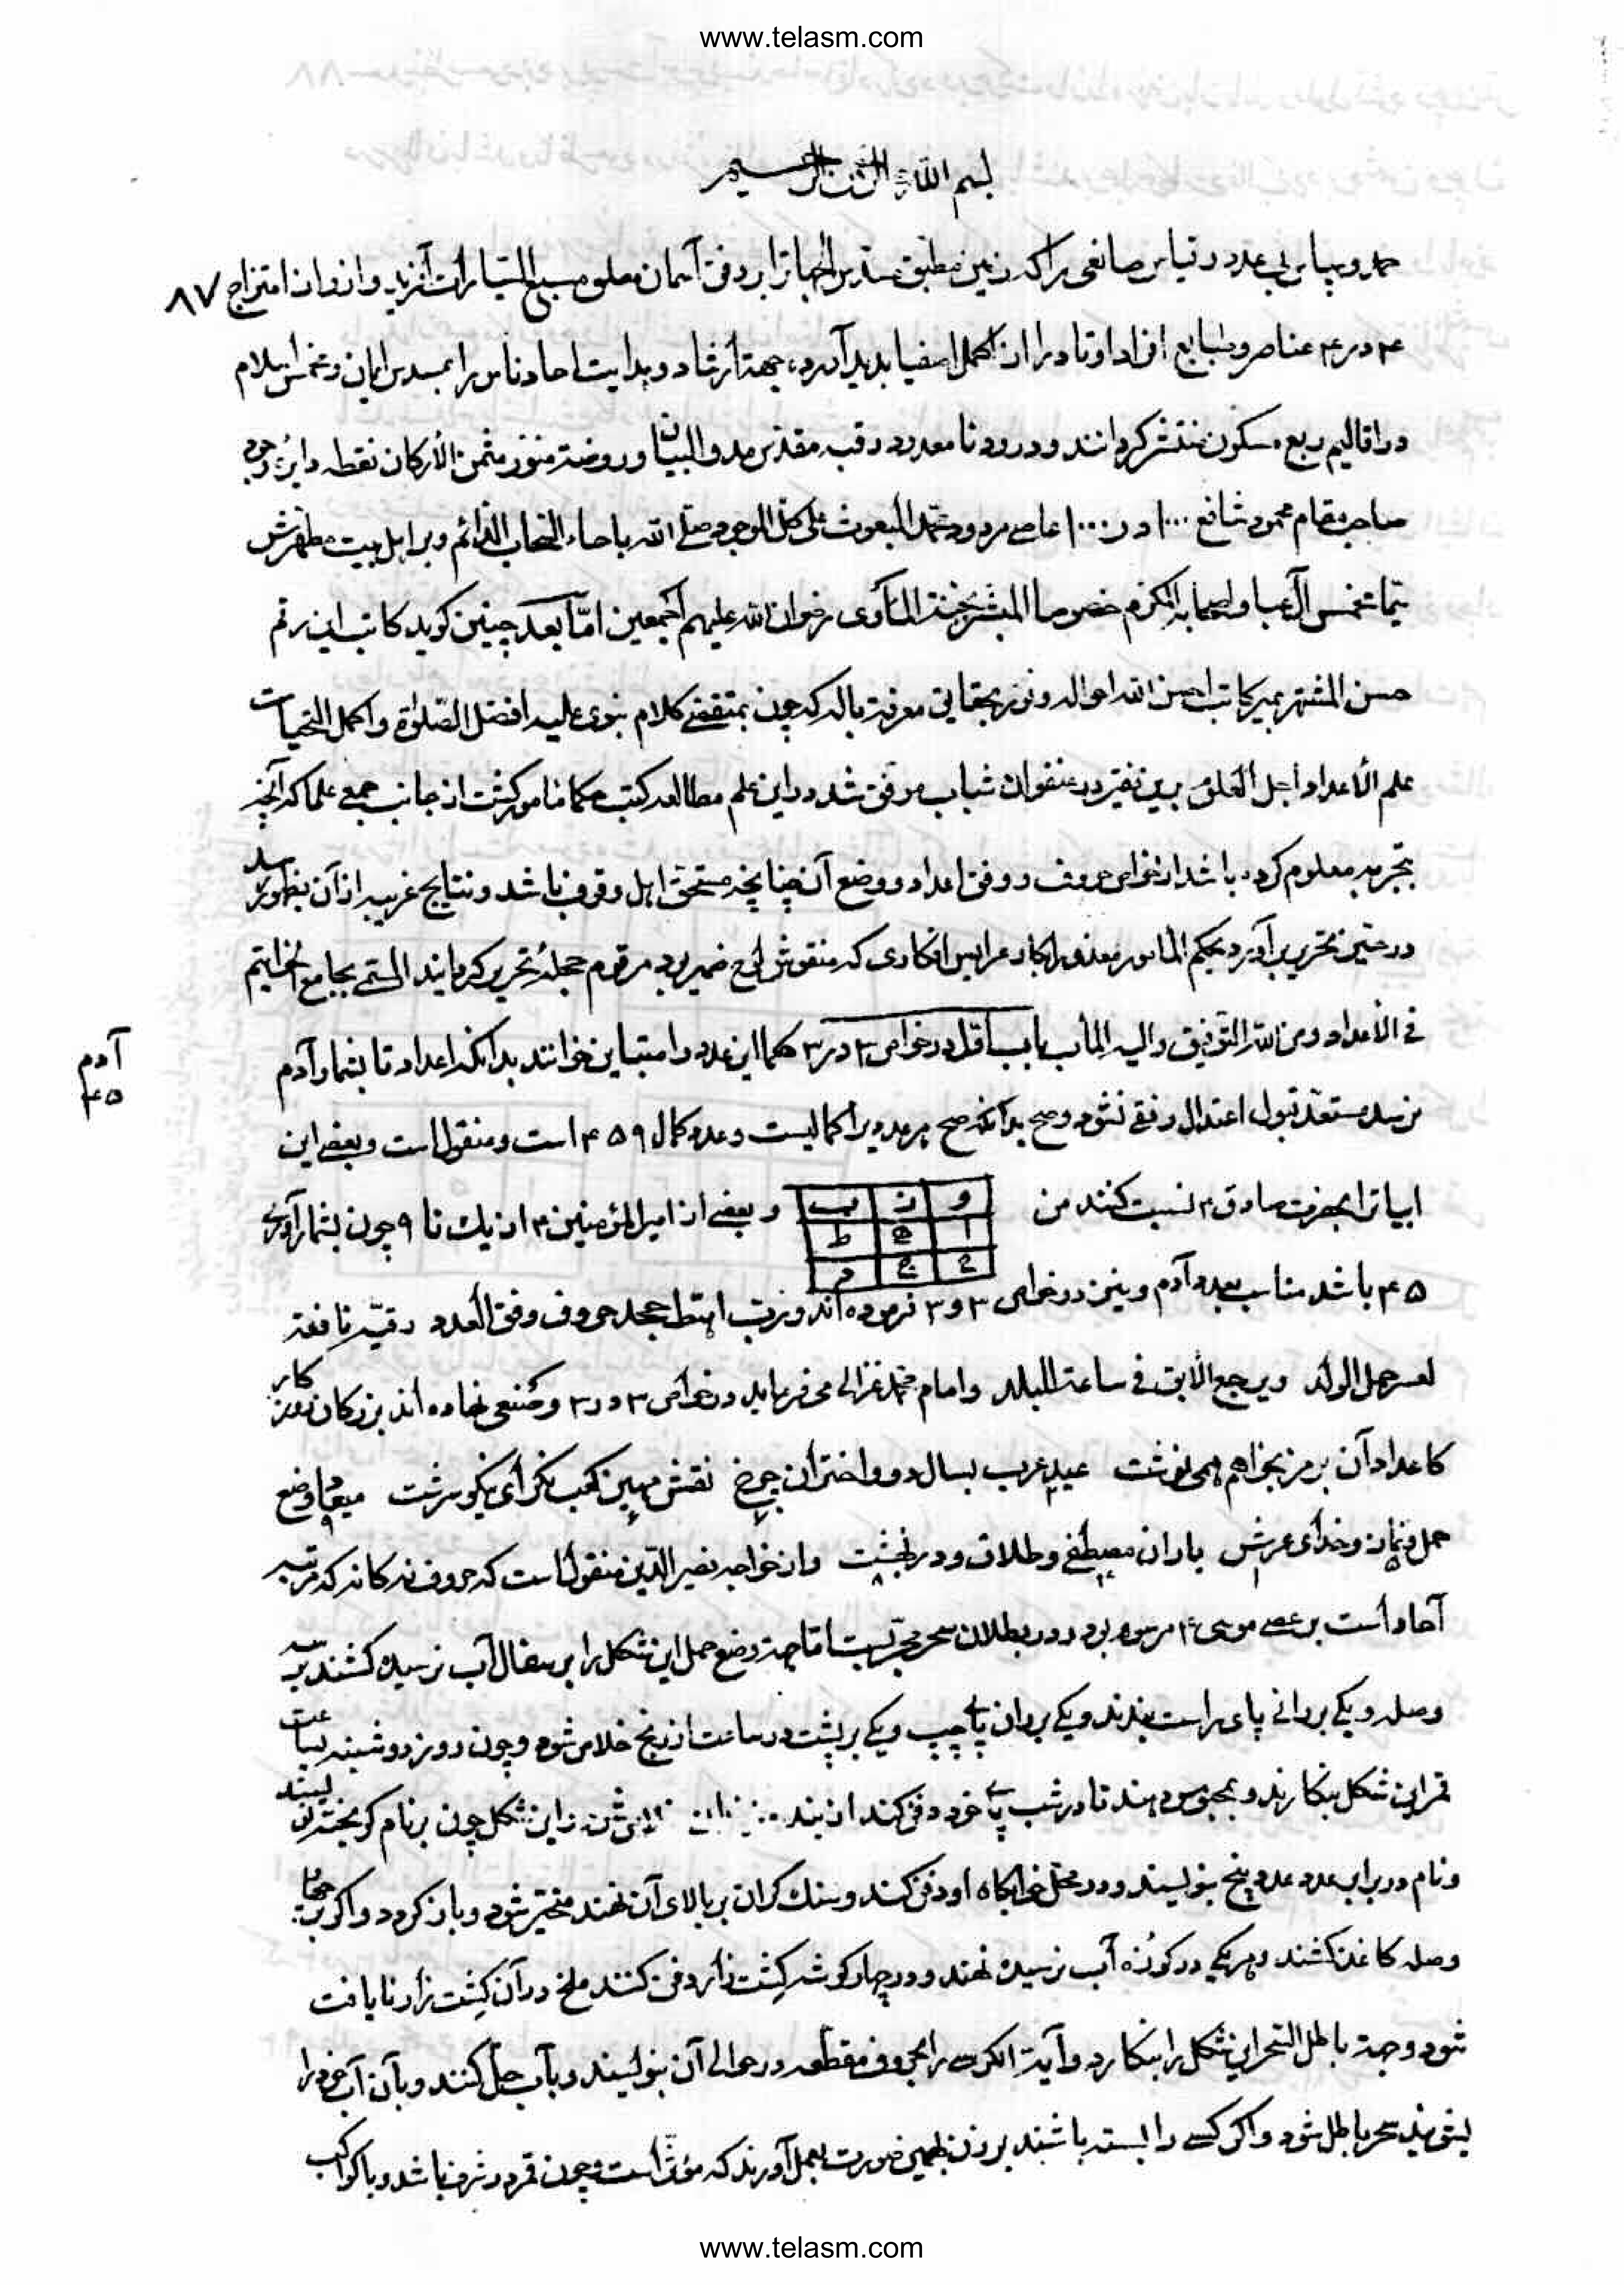 www.telasm.com
بسم الله الرحمن الرحیم
حمد و سپاس بی عدد و قیاس صانعی را که زمین مطبق مسدس الجهات را بر وفق آسمان معلق مسبع السیارات آفرید و از امتزاج ۸۷
۴ در ۴ عناصر و طبایع افراد اوتاد را از اکمل اصفیا پدید آورد، جهة ارشاد و هدایت احاد ناس را بمسدس ایمان و مخمس اسلام
در اقالیم ربع مسکون منتشر کردانند و درود نا معدود رقبه مقدس و روضه منور مثمن الأرکان نقطه دایره وجود
صاحب مقام محمود شافع ۱۰۰۰ در ۱۰۰۰ عاصی مردود محمد المبعوث علی کل الموجود صلی الله و بر اهل بیت مطهرش
خمس آل عبا و اصحابه المکرم خصوصا المبشر بجنة المأوی رضوان الله علیهم أجمعین امّا بعد چنین کوید کاتب این رقم
حسن المشتهر بمیر کاتب احسن الله احواله و نور بحقایق معرفة باله که چون بمقتضی کلام نبوی علیه افضل الصلوة و اکمل التحیات
علم الأعداد اجل العلوم بدین فقیر در عنفوان شباب موفق شد در این علم مطالعه کتب حکما از جانب جمعی علما که آنچه
بتجربه معلوم کرده باشد از خواص حروف و وفق اعداد و وضع آن چنانچه مستحق اهل وقوف باشد و نتایج غریبه از آن بظهور رسد
در حیز تحریر آورد بحکم المأمور معذور ابکار عرایس افکاری که منقوش لوح ضمیر بود مرقوم تحریر کردانید المسمی بجامع الخواتیم
فی الأعداد و من الله التوفیق و الیه المآب باب اول در خواص ۳ در ۳ حکما این عدد را متباین خوانند بدانکه اعداد تا بشمار آدم
آدم
۴۵
نرسد مستعد قبول اعتدال وفقی نشود و صح بدانکه صح هر عددی را کمالیست و عدد کمال ۴۵۹ است و منقول است و بعضی این
ابیات را بحضرت صادق ۴ نسبت کنند من
و ز ب
ا ه ط
ح ج د
و بعضی از امیر المؤمنین ۴ از یك تا ۹ چون بشمار آوری
۴۵ باشد مناسب بعدد آدم و نیز در خواص ۳ و ۳ فرموده اند حروف وفق العدد رقیة نافعة
لعسر حمل الولد و یرجع الآبق فی ساعة البلد و امام محمد غزالی می فرماید در خواص ۳ در ۳ وضعی نهاده اند بزرکان روزکار
کاعداد آن برمز بخواهم همی نوشت عید عرب بسال دو و اختران چرخ نقش مهین کعب نکر ای نیکو سرشت میعاد وضع
حمل و نماز و خدای عرش یاران مصطفی و طلاق و در بهشت و از خواجه نصیر الدین منقول است که حروف نه کانه که مرتبه
آحاد است بر عصای موسی ۴ مرسوم بود و در بطلان سحر مجرّبست امّا جهة وضع حمل این شکل را بر سفال آب نرسیده کشند بر سه
وصله و یکی بر ران پای راست بندند و یکی بر ران پای چپ و یکی بر پشت در ساعت از رنج خلاص شود و چون روز دوشنبه بساعت
قمر این شکل بنکارند و بمحبوس دهند تا در شب پای خود دفن کند از بند و این شکل چون بر نام کریخته نویسند
و نام در برابر عدد پنج بنویسند و در محل خوابکاه او دفن کنند و سنك کران بر بالای آن نهند متحیر شود و باز کردد و اکر بر چهار
وصله کاغذ کشند و هر یکی در کوزه آب نرسیده نهند و در چهار کوشه کشت زار دفن کنند ملخ در آن کشت زار نا یافت
شود و جهة باطل السحر این شکل را بنکارد و آیة الکرسی را بحروف مقطعه در حوالی آن بنویسند و بآب حل کنند و بآن آب خود را
بشویند سحر باطل شود و اکر کسی را بسته باشند بر زن بهمین صورت بعمل آورند که مؤثر است و چون قمر در شرف باشد و با کواکب
www.telasm.com